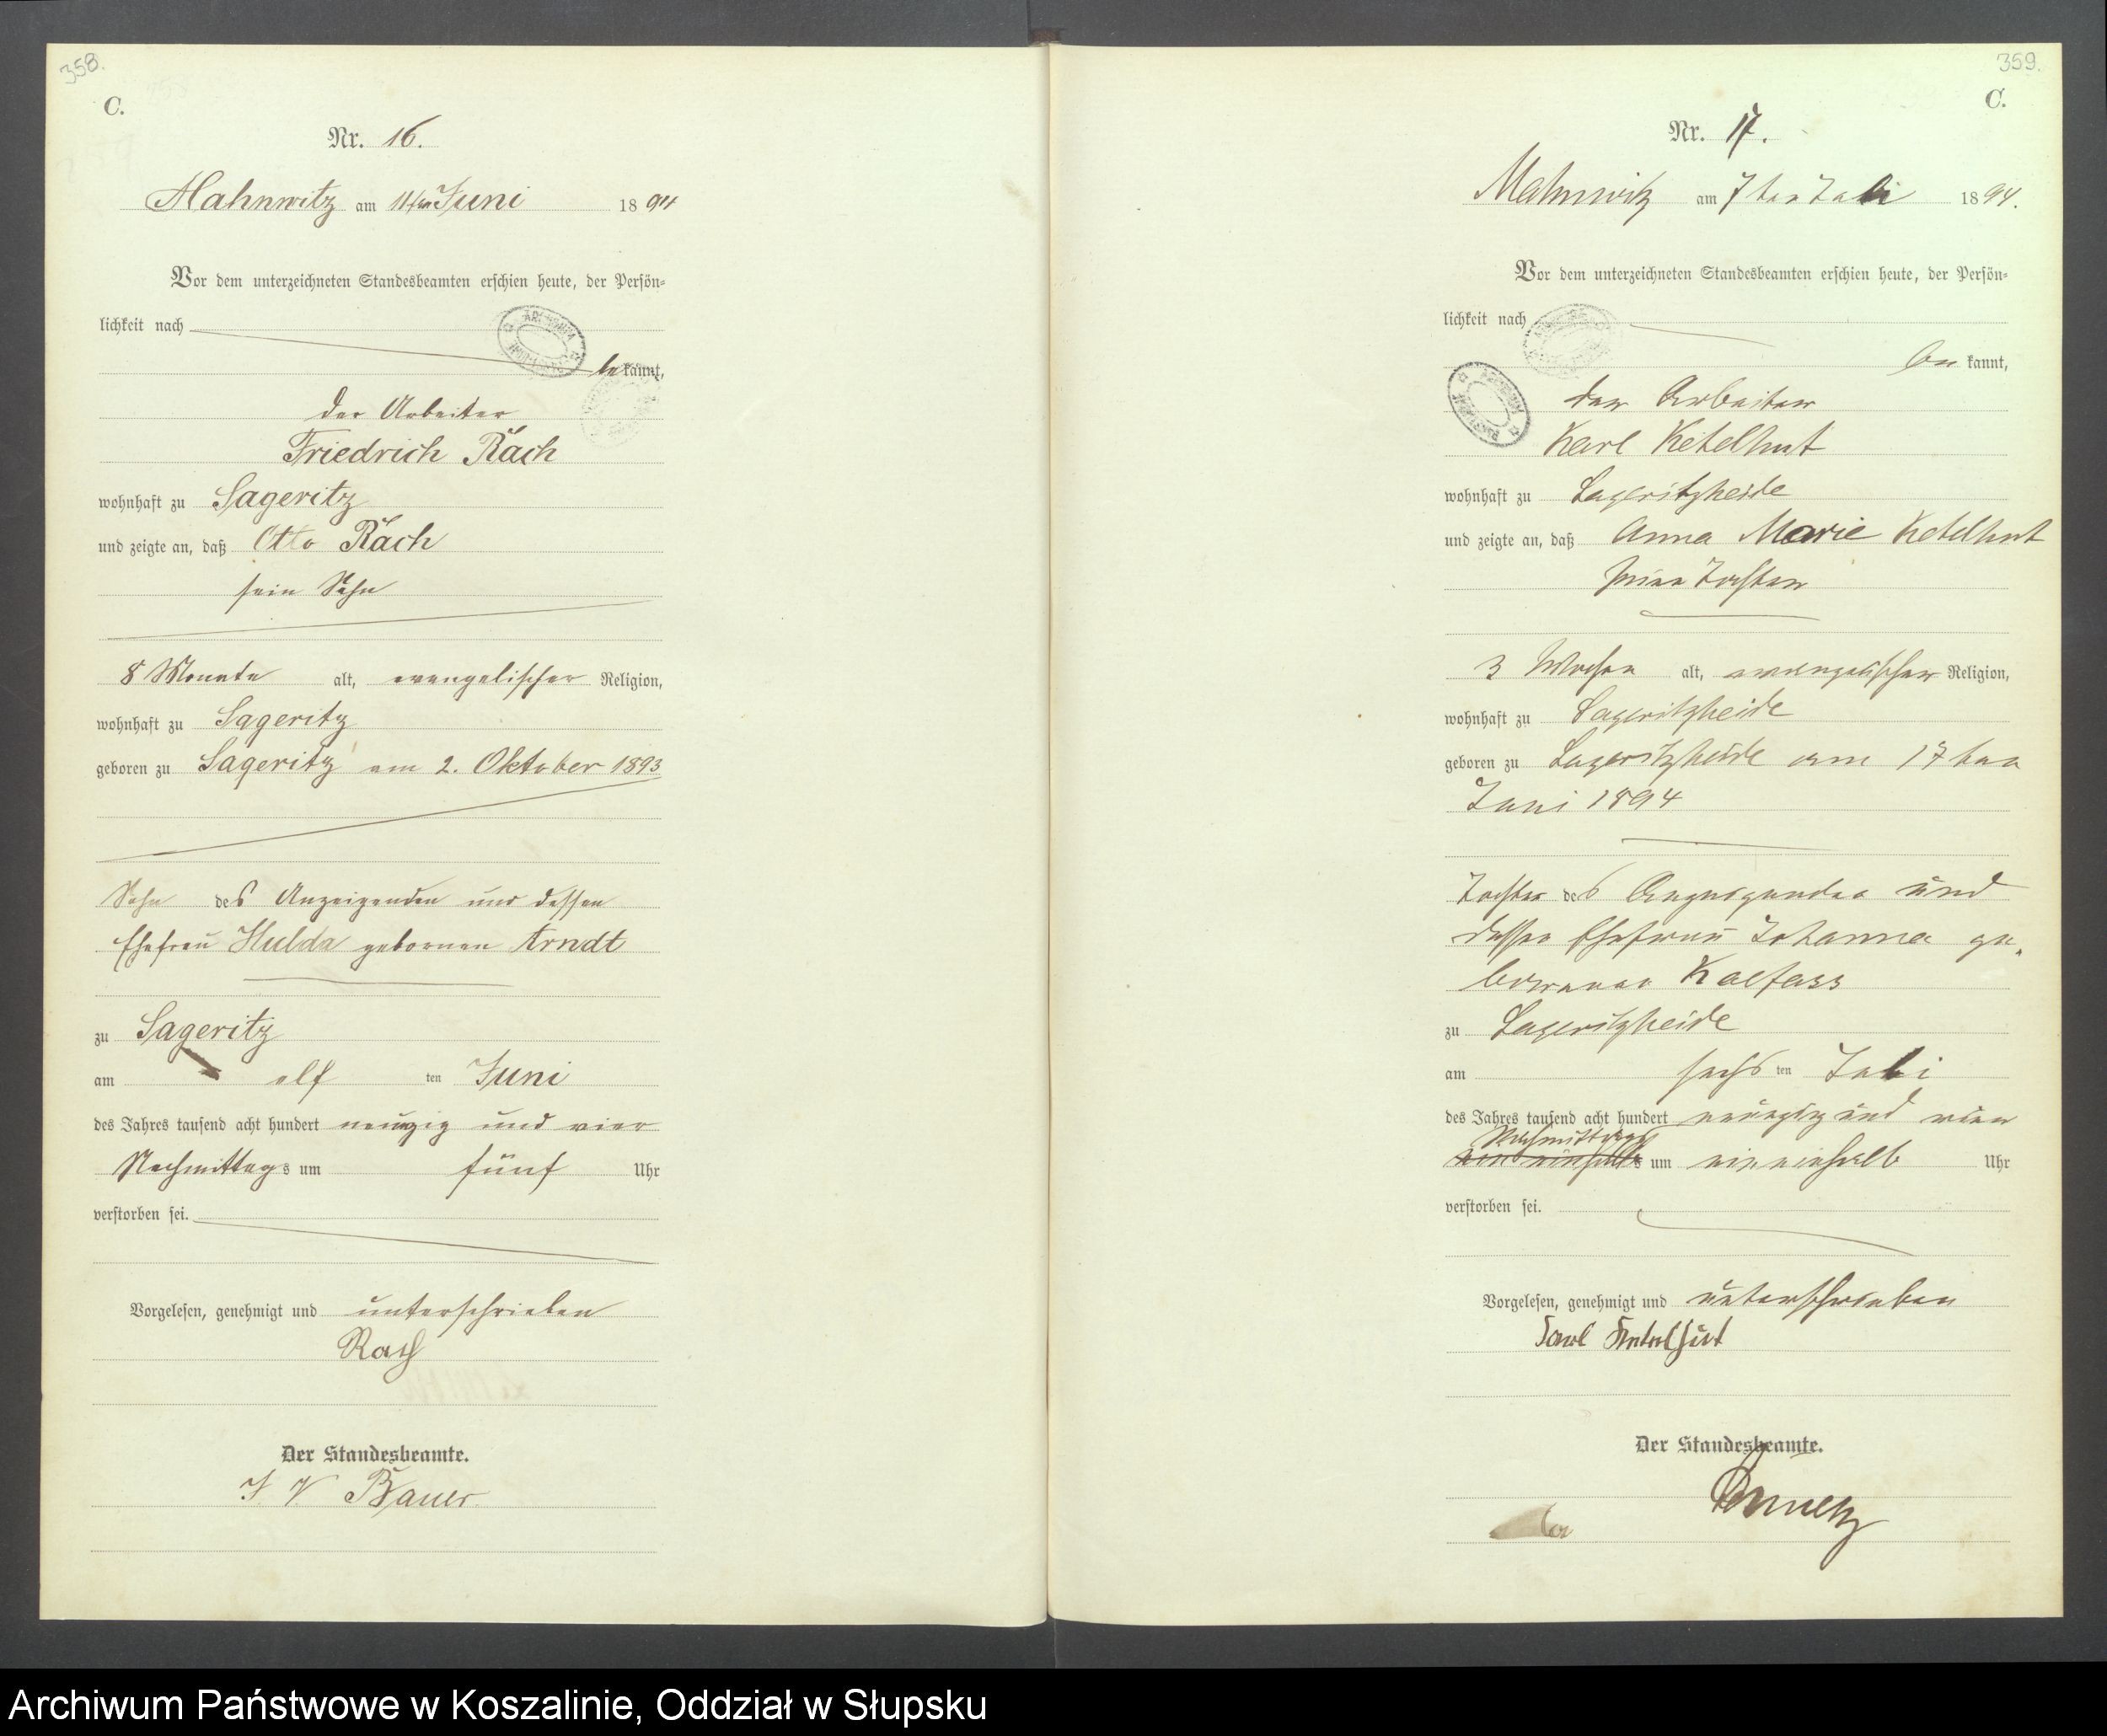 358.
C.
Nr. 16.
Mahnwitz am 11ten Juni 1894
Vor dem unterzeichneten Standesbeamten erschien heute, der Persön-
lichkeit nach
bekannt,
der Arbeiter
Friedrich Rach
wohnhaft zu Sageritz
und zeigte an, daß Otto Rach
sein Sohn
8 Monate alt, evangelischer Religion,
wohnhaft zu Sageritz
geboren zu Sageritz am 2. Oktober 1893
Sohn des Anzeigenden und dessen
Ehefrau Hulda gebornen Arndt
zu Sageritz
am elf ten Juni
des Jahres tausend acht hundert neunzig und vier
Nachmittags um fünf Uhr
verstorben sei.
Vorgelesen, genehmigt und unterschrieben
Rach
Der Standesbeamte.
J V Bauer
359.
C.
Nr. 17.
Mahnwitz am 7ten Juli 1894.
Vor dem unterzeichneten Standesbeamten erschien heute, der Persön-
lichkeit nach
bekannt,
der Arbeiter
Karl Ketelhut
wohnhaft zu Sageritzheide
und zeigte an, daß Anna Marie Ketelhut
seine Tochter
3 Wochen alt, evangelischer Religion,
wohnhaft zu Sageritzheide
geboren zu Sageritzheide am 17ten
Juni 1894
Tochter des Anzeigenden und
dessen Ehefrau Johanna ge-
borenen Kalfass
zu Sageritzheide
am sechsten Juli
des Jahres tausend acht hundert neunzig und vier
Nachmittags
um eineinhalb Uhr
verstorben sei.
Vorgelesen, genehmigt und unterschrieben
Karl Ketelhut
Der Standesbeamte.
Archiwum Państwowe w Koszalinie, Oddział w Słupsku